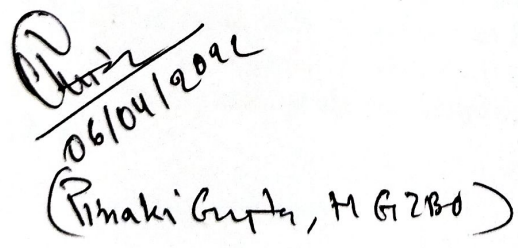 06/04/2022
(Pinaki Gupta, M GZBO)